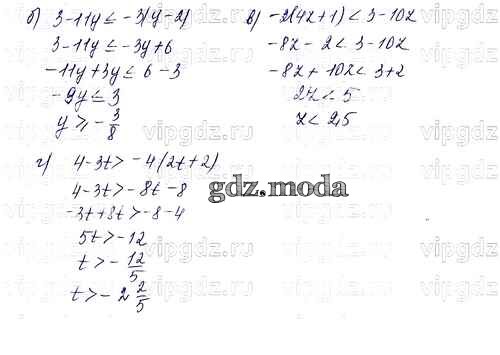 б) 3-11y ≤ -3(y-2)
3-11y ≤ -3y+6
-11y+3y ≤ 6-3
-9y ≤ 3
y ≥ -3/8
в) -2(4z+1) < 3-10z
-8z-2 < 3-10z
-8z+10z < 3+2
2z < 5
z < 2,5
г) 4-3t > -4(2t+2)
4-3t > -8t-8
-3t+8t > -8-4
5t > -12
t > -12/5
t > -2 2/5
gdz.moda
vipgdz.ru